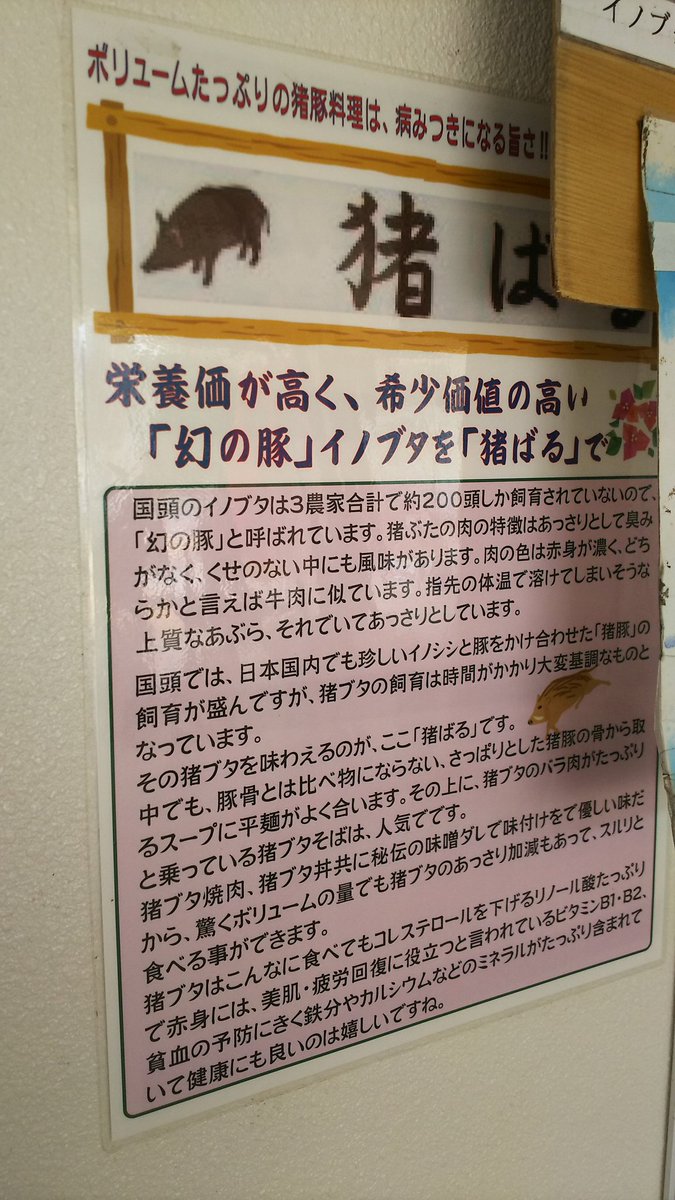 イノブ
ボリュームたっぷりの猪豚料理は、病みつきになる旨さ!!
猪ばる
栄養価が高く、希少価値の高い
「幻の豚」イノブタを「猪ばる」で
国頭のイノブタは3農家合計で約200頭しか飼育されていないので、
「幻の豚」と呼ばれています。猪ぶたの肉の特徴はあっさりとして臭み
がなく、くせのない中にも風味があります。肉の色は赤身が濃く、どち
らかと言えば牛肉に似ています。指先の体温で溶けてしまいそうな
上質なあぶら、それでいてあっさりとしています。
国頭では、日本国内でも珍しいイノシシと豚をかけ合わせた「猪豚」の
飼育が盛んですが、猪ブタの飼育は時間がかかり大変基調なものと
なっています。
その猪ブタを味わえるのが、ここ「猪ばる」です。
中でも、豚骨とは比べ物にならない、さっぱりとした猪豚の骨から取
るスープに平麺がよく合います。その上に、猪ブタのバラ肉がたっぷり
と乗っている猪ブタそばは、人気でです。
猪ブタ焼肉、猪ブタ丼共に秘伝の味噌ダレで味付けをで優しい味だ
から、驚くボリュームの量でも猪ブタのあっさり加減もあって、スルリと
食べる事ができます。
猪ブタはこんなに食べてもコレステロールを下げるリノール酸たっぷり
で赤身には、美肌・疲労回復に役立つと言われているビタミンB1・B2、
貧血の予防にきく鉄分やカルシウムなどのミネラルがたっぷり含まれて
いて健康にも良いのは嬉しいですね。